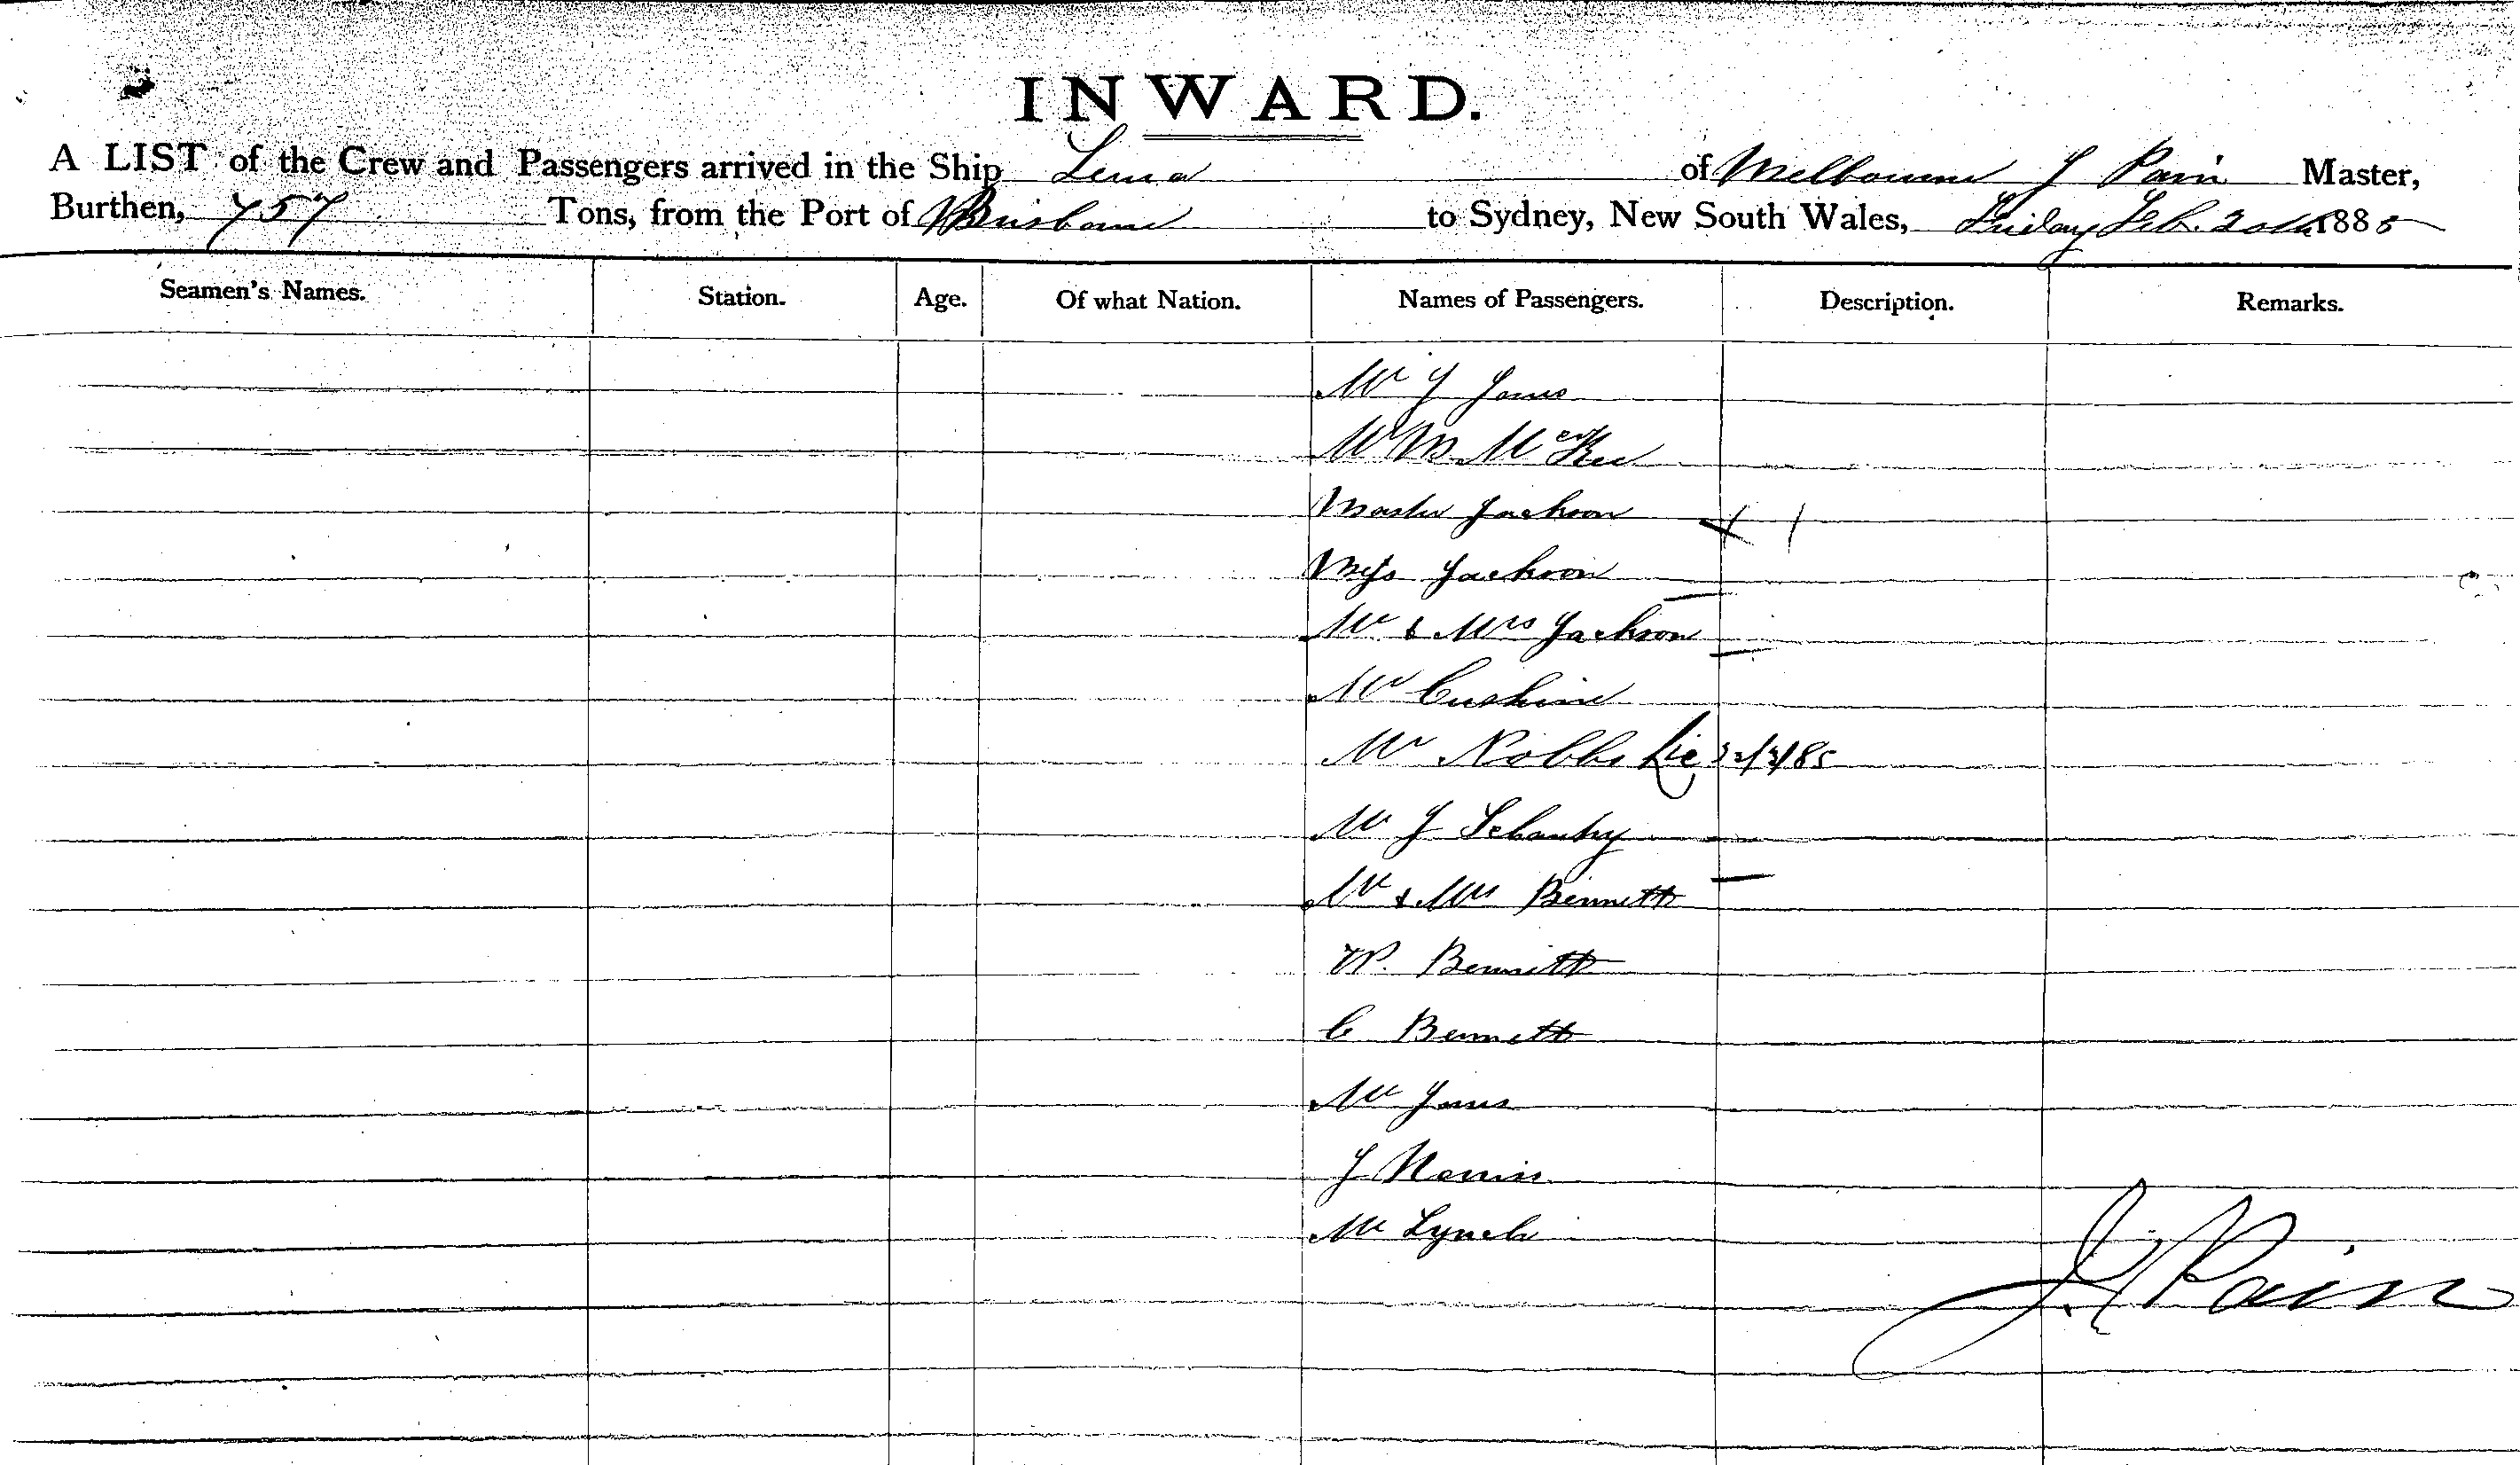 INWARD.
A LIST of the Crew and Passengers arrived in the Ship Lima of Melbourne J Pain Master,
Burthen, 757 Tons, from the Port of Brisbane to Sydney, New South Wales, Friday Feb. 20th 1885
Seamen's Names. Station. Age. Of what Nation. Names of Passengers. Description. Remarks.
Mr J Jones
Mr M McKee
Master Jackson
Miss Jackson
Mr & Mrs Jackson
Mr Cushine
Mr Nobbs
Mr J
Mr & Mrs Bennett
W. Bennett
C Bennett
Mr Jones
J
Mr Lynch
J Pain